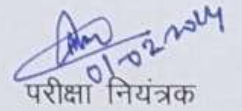 01-02-2024
परीक्षा नियंत्रक